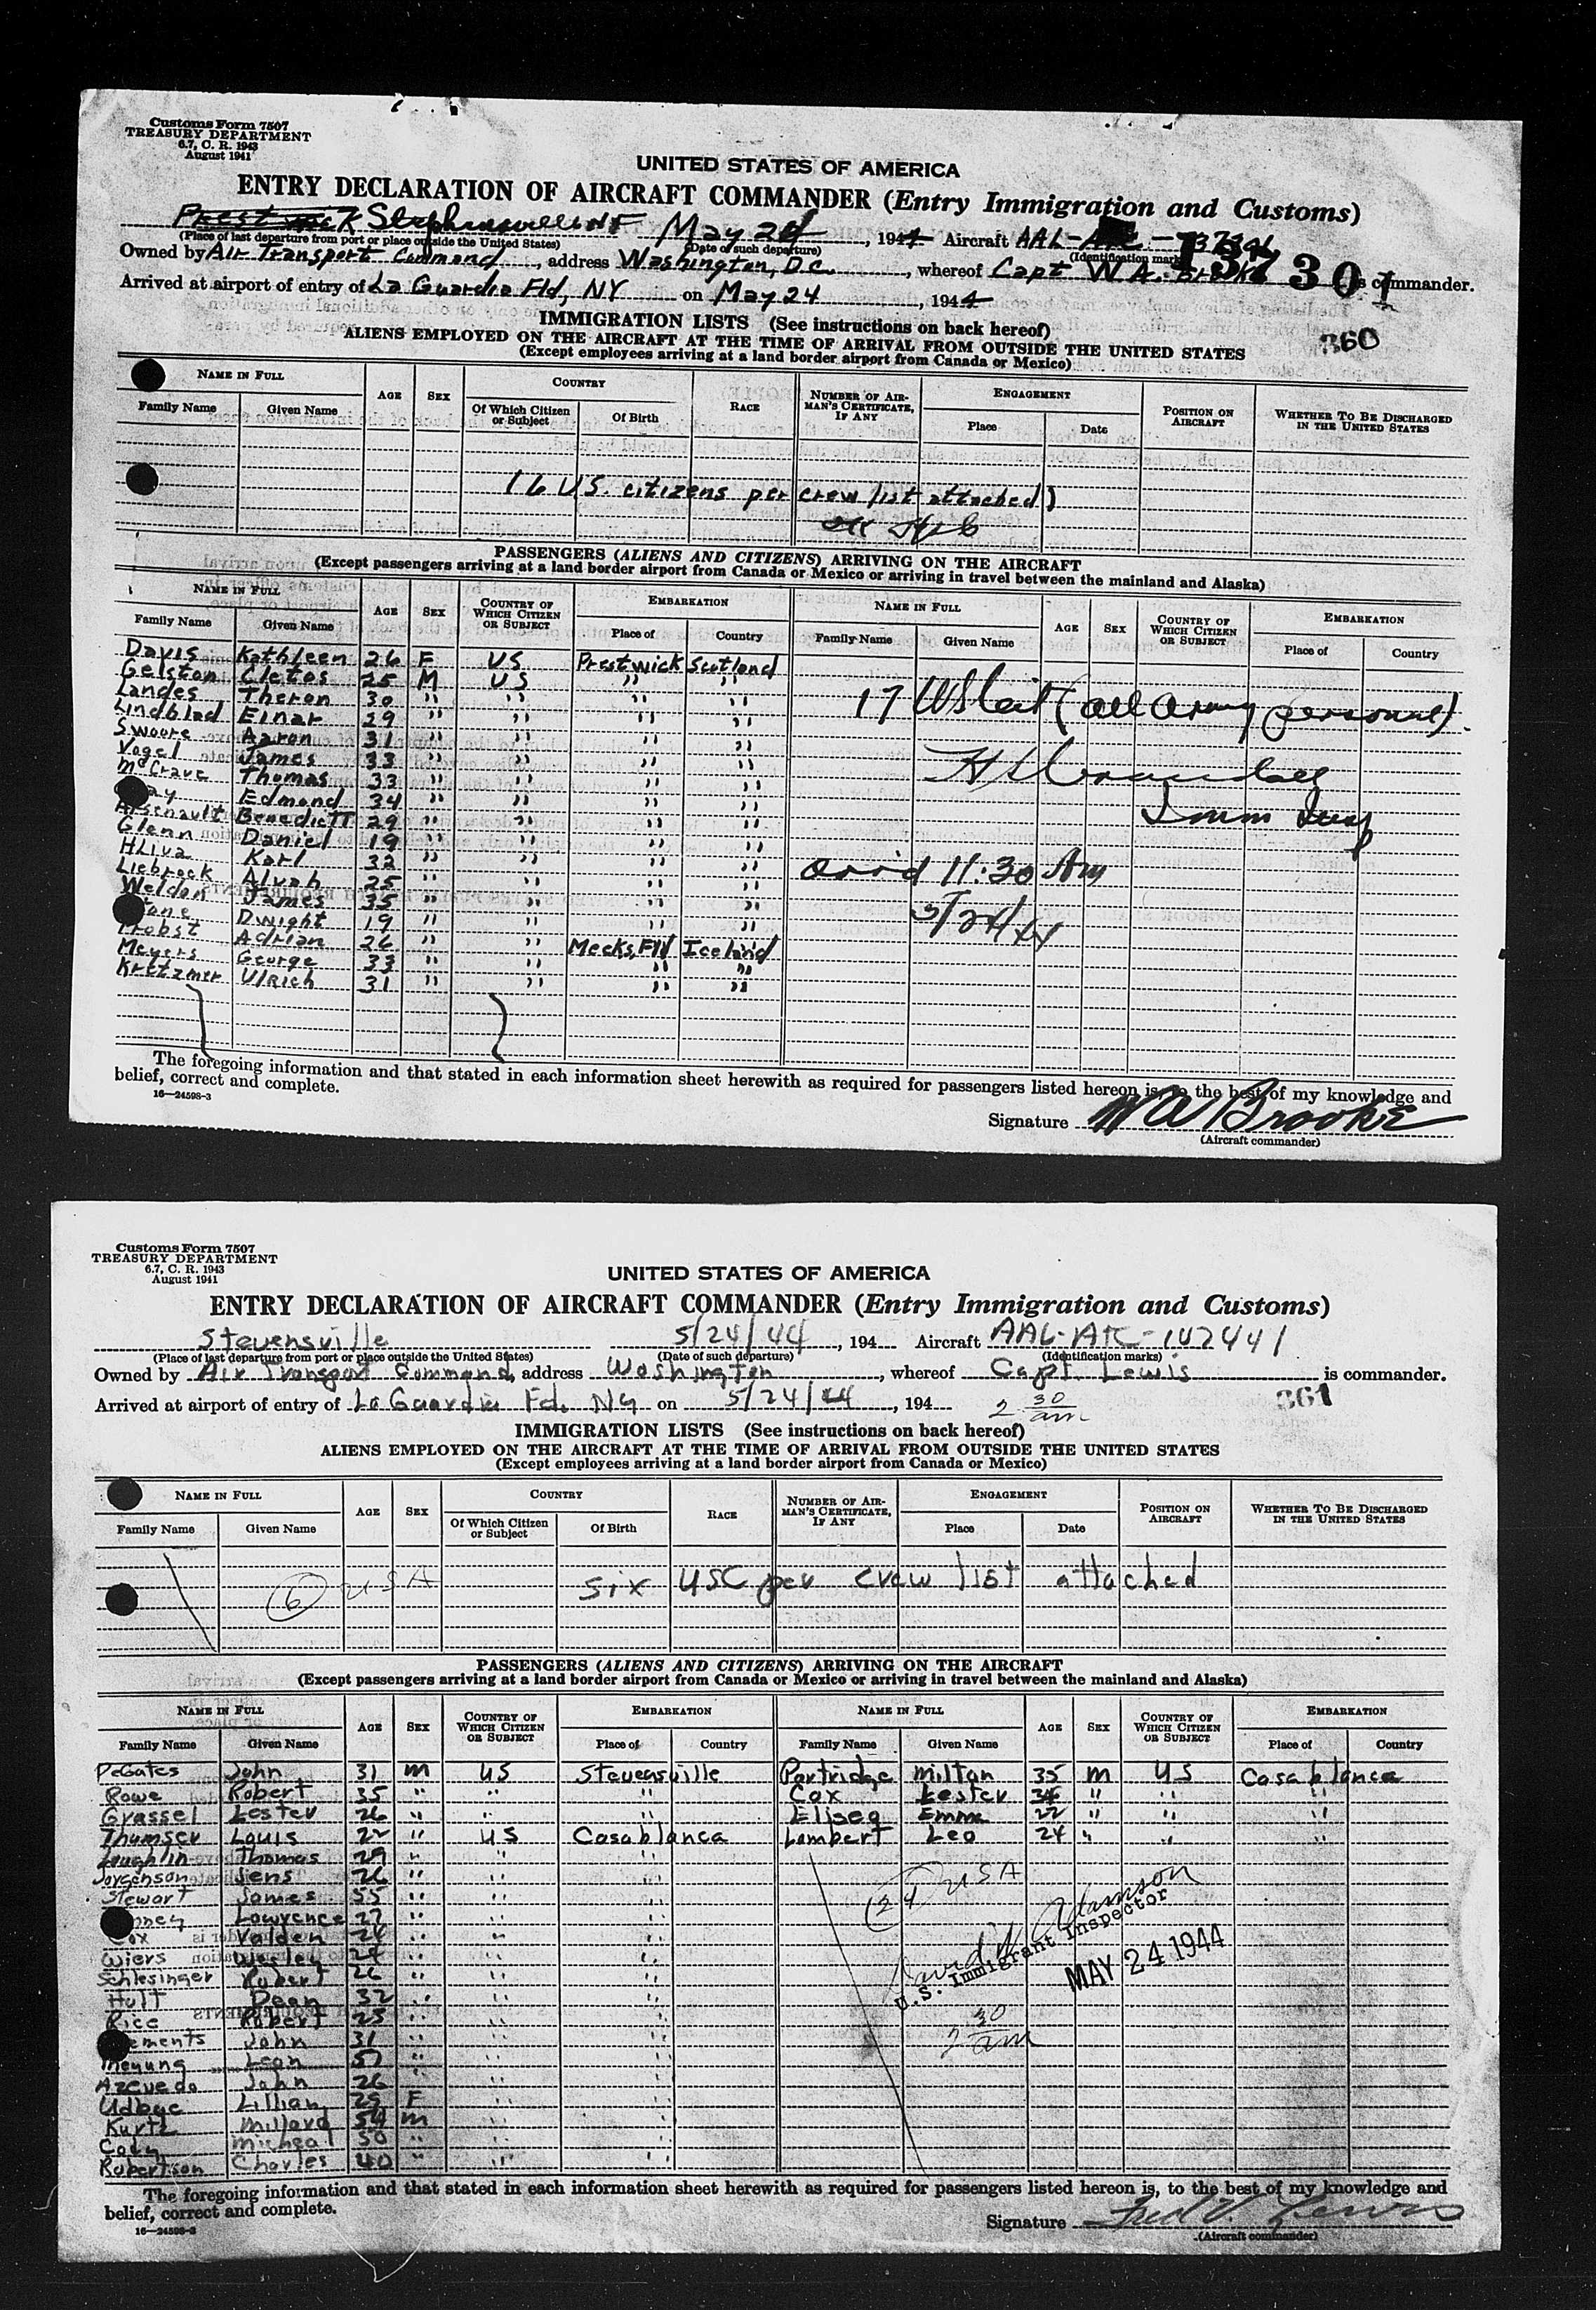 Customs Form 7507
TREASURY DEPARTMENT
6.7, C. R. 1943
August 1941
UNITED STATES OF AMERICA
ENTRY DECLARATION OF AIRCRAFT COMMANDER (Entry Immigration and Customs)
Prestwick Stephenville NF May 24, 1944 Aircraft AAL-ATC-
(Place of last departure from port or place outside the United States) (Date of such departure) (Identification marks)
Owned by Air Transport Command, address Washington, D.C., whereof Capt W A. Brooke is commander.
Arrived at airport of entry of La Guardia Fld, NY on May 24, 1944
IMMIGRATION LISTS (See instructions on back hereof)
360
ALIENS EMPLOYED ON THE AIRCRAFT AT THE TIME OF ARRIVAL FROM OUTSIDE THE UNITED STATES
(Except employees arriving at a land border airport from Canada or Mexico)
NAME IN FULL AGE SEX COUNTRY RACE NUMBER OF AIRMAN'S CERTIFICATE, IF ANY ENGAGEMENT POSITION ON AIRCRAFT WHETHER TO BE DISCHARGED IN THE UNITED STATES
Family Name Given Name Of Which Citizen or Subject Of Birth Place Date
16 U.S. citizens per crew list attached)
PASSENGERS (ALIENS AND CITIZENS) ARRIVING ON THE AIRCRAFT
(Except passengers arriving at a land border airport from Canada or Mexico or arriving in travel between the mainland and Alaska)
NAME IN FULL AGE SEX COUNTRY OF WHICH CITIZEN OR SUBJECT EMBARKATION NAME IN FULL AGE SEX COUNTRY OF WHICH CITIZEN OR SUBJECT EMBARKATION
Family Name Given Name Place of Country Family Name Given Name Place of Country
Davis Kathleen 26 F US Prestwick Scotland
Gelston Cletos 25 M US " "
Landes Theron 30 " " " "
Lindblad Einar 29 " " " "
Swoore Aaron 31 " " " "
Vogel James 33 " " " "
McCrave Thomas 33 " " " "
ay Edmond 34 " " " "
Arsenault Benedictt 29 " " " "
Glenn Daniel 19 " " " "
HLiva Karl 32 " " " "
Liebrock Alvah 25 " " " "
Weldon James 35 " " " "
ane Dwight 19 " " " "
Probst Adrian 26 " " Meeks, Fld Iceland
Meyers George 33 " " " "
Kretzmer Ulrich 31 " " " "
17 US Cit (all Army personnel).
Imm Insp
Arrv'd 11:30 AM
5/24/44
The foregoing information and that stated in each information sheet herewith as required for passengers listed hereon is, to the best of my knowledge and
belief, correct and complete.
16—24598-3
Signature W A Brooke
(Aircraft commander)
Customs Form 7507
TREASURY DEPARTMENT
6.7, C. R. 1943
August 1941
UNITED STATES OF AMERICA
ENTRY DECLARATION OF AIRCRAFT COMMANDER (Entry Immigration and Customs)
Stevensville 5/24/44, 194 Aircraft AAL-ATC-142441
(Place of last departure from port or place outside the United States) (Date of such departure) (Identification marks)
Owned by Air Transport Command, address Washington, whereof Capt. Lewis is commander.
Arrived at airport of entry of La Guardia Fd. NY on 5/24/44, 194 2 30 am 361
IMMIGRATION LISTS (See instructions on back hereof)
ALIENS EMPLOYED ON THE AIRCRAFT AT THE TIME OF ARRIVAL FROM OUTSIDE THE UNITED STATES
(Except employees arriving at a land border airport from Canada or Mexico)
NAME IN FULL AGE SEX COUNTRY RACE NUMBER OF AIRMAN'S CERTIFICATE, IF ANY ENGAGEMENT POSITION ON AIRCRAFT WHETHER TO BE DISCHARGED IN THE UNITED STATES
Family Name Given Name Of Which Citizen or Subject Of Birth Place Date
6 USA six USC per crew list attached
PASSENGERS (ALIENS AND CITIZENS) ARRIVING ON THE AIRCRAFT
(Except passengers arriving at a land border airport from Canada or Mexico or arriving in travel between the mainland and Alaska)
NAME IN FULL AGE SEX COUNTRY OF WHICH CITIZEN OR SUBJECT EMBARKATION NAME IN FULL AGE SEX COUNTRY OF WHICH CITIZEN OR SUBJECT EMBARKATION
Family Name Given Name Place of Country Family Name Given Name Place of Country
DeGates John 31 m US Stevensville Partridge Milton 35 m US Casablanca
Rowe Robert 35 " " " Cox Lester 34 " " "
Grassel Lester 26 " " " Eliseo Emma 22 " " "
Thumser Louis 22 " US Casablanca Lambert Leo 24 " " "
Loughlin Thomas 29 " " "
Jorgenson Jens 26 " " "
Stewart James 55 " " "
nney Lawrence 27 " " "
Cox Valden 24 " " "
Wiers Wesley 24 " " "
Schlesinger Robert 26 " " "
Hult Dean 32 " " "
Rice Robert 25 " " "
ements John 31 " " "
Meyung Leon 57 " " "
Azevedo John 26 " " "
Udbye Lillian 25 F " "
Kurtz Millard 54 m " "
Cody Micheal 50 " " "
Robertson Charles 40 " " "
24 USA
David W Adamson
U.S. Immigrant Inspector
MAY 24 1944
2 30 am
The foregoing information and that stated in each information sheet herewith as required for passengers listed hereon is, to the best of my knowledge and
belief, correct and complete.
16—24598-3
Signature Fred V. Lewis
(Aircraft commander)